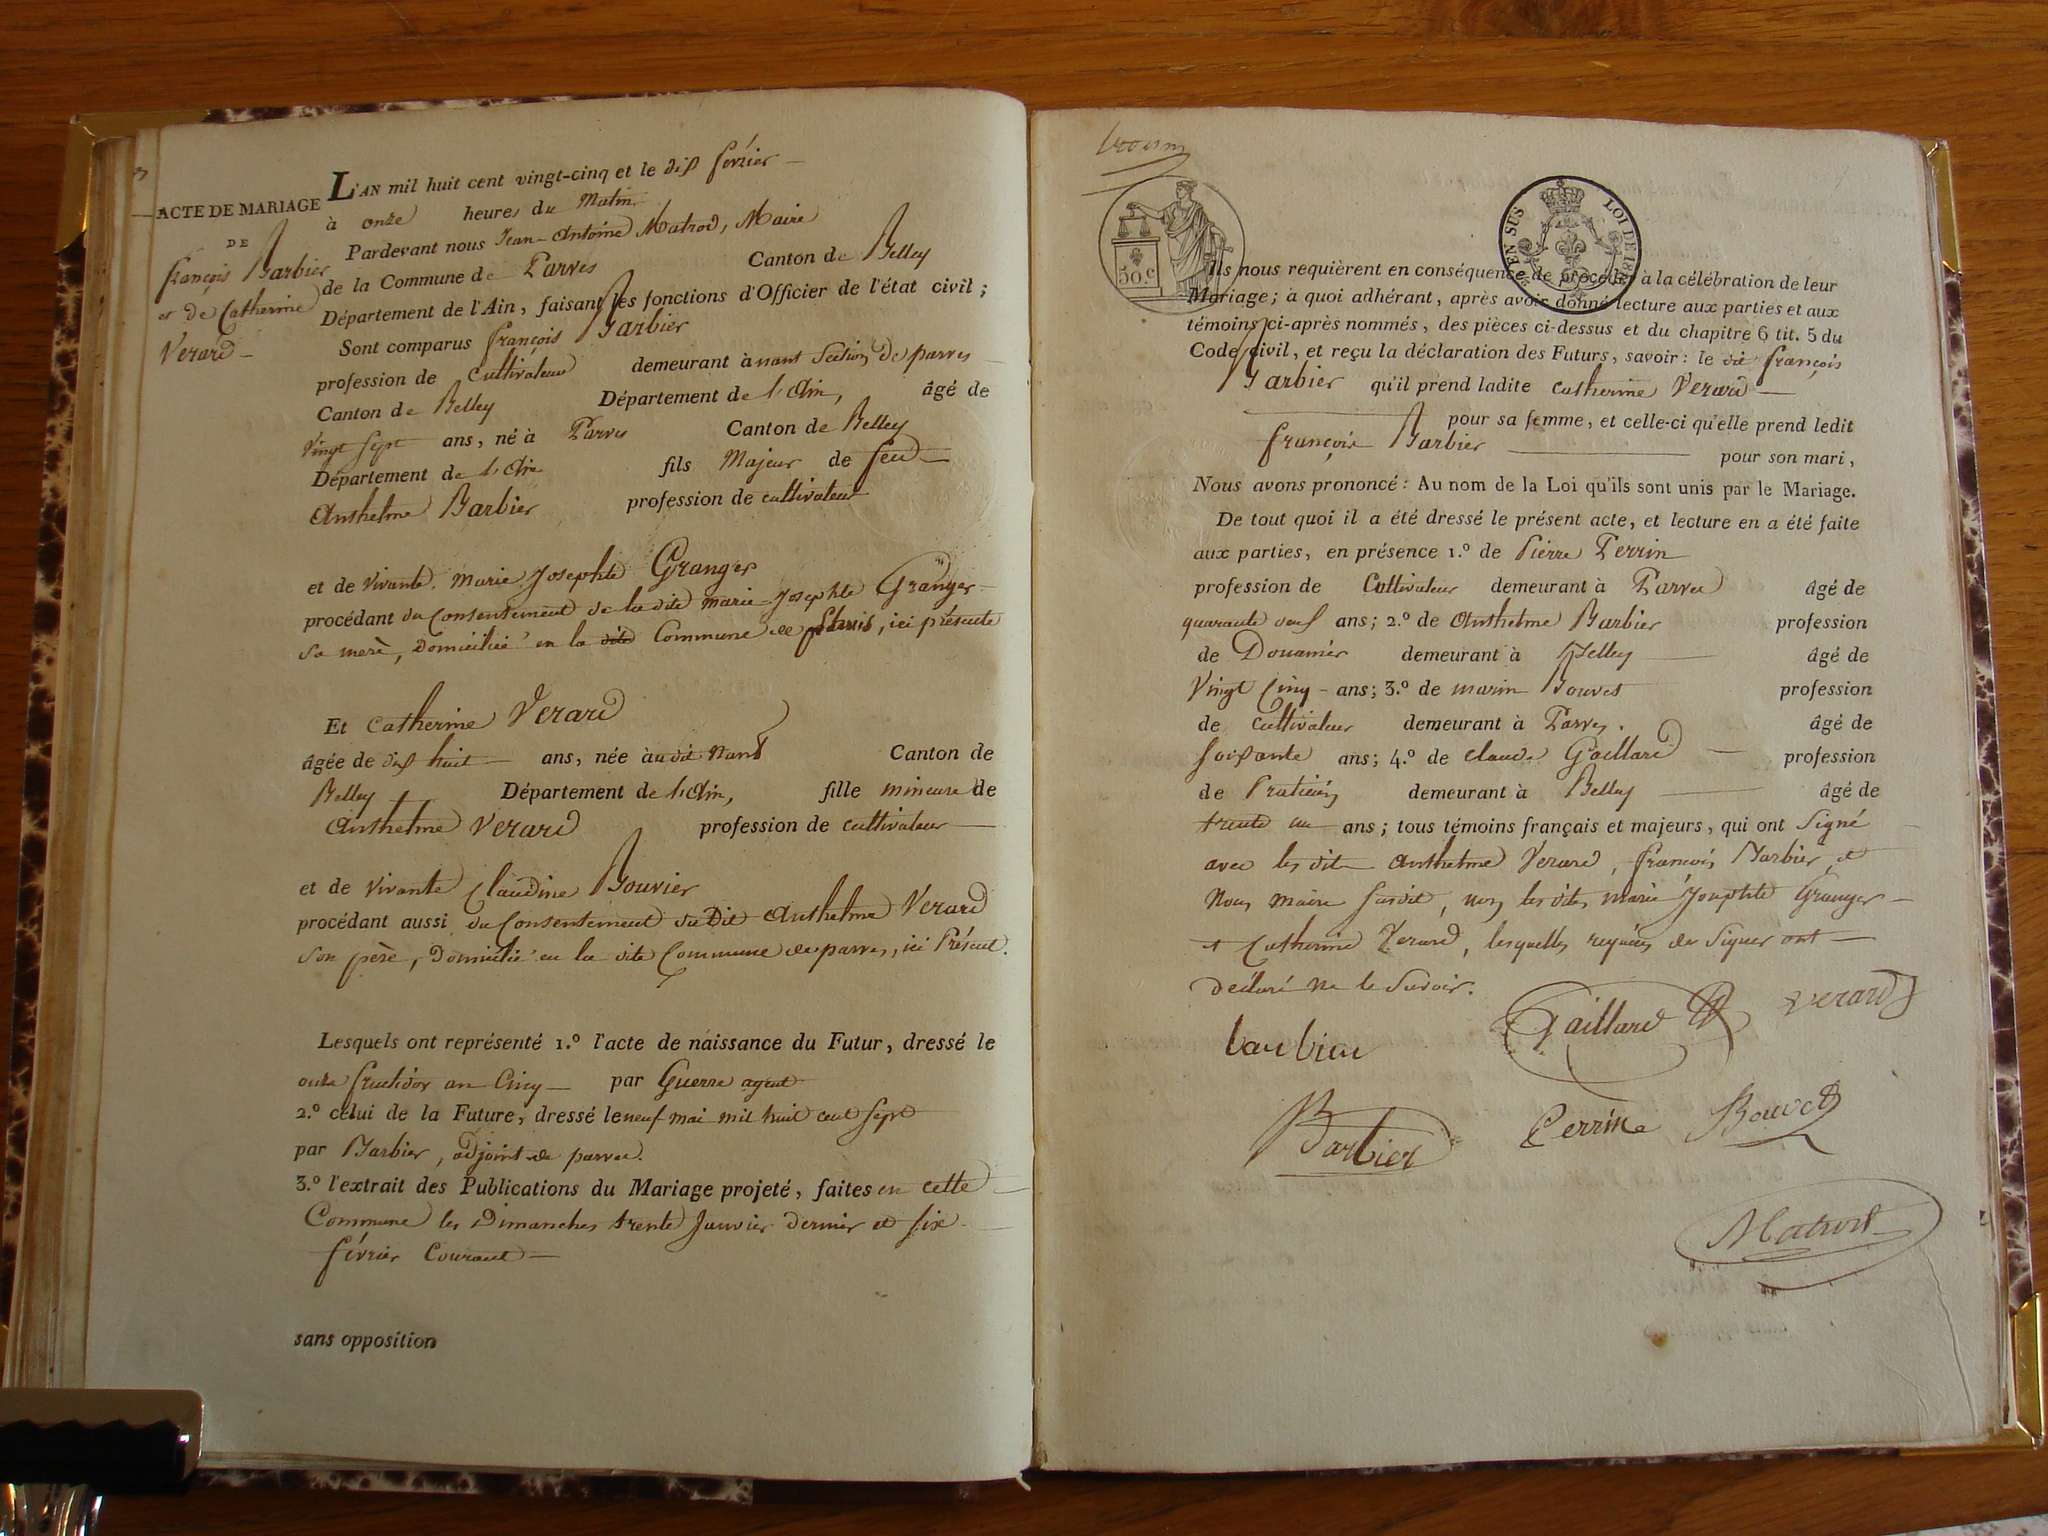 ACTE DE MARIAGE
DE
françois Barbier
et de Catherine
Verard
L'AN mil huit cent vingt-cinq et le dix février
à onze heures du Matin
Pardevant nous Jean-Antoine Matrod, Maire
de la Commune de Parves Canton de Belley
Département de l'Ain, faisant les fonctions d'Officier de l'état civil;
Sont comparus françois Barbier
profession de Cultivateur demeurant à nant Section de parves
Canton de Belley Département de l'Ain, âgé de
vingt sept ans, né à Parves Canton de Belley
Département de l'Ain fils Majeur de feu
Anthelme Barbier profession de cultivateur
et de vivante marie Josephte Granger
procédant du Consentement de la dite marie-Josephte Granger
sa merè, Domiciliée en la dite Commune de parves, ici présente
Et Catherine Verard
âgée de dix huit ans, née au dit Nant Canton de
Belley Département de l'Ain, fille mineure de
Anthelme Verard profession de cultivateur
et de vivante Claudine Bouvier
procédant aussi du Consentement du Dit Anthelme Verard
son père, Domicilié en la dite Commune de parves, ici Présent.
Lesquels ont représenté 1.º l'acte de naissance du Futur, dressé le
onze fructidor an Cinq par Guerre agent
2.º celui de la Future, dressé le neuf mai mil huit cent sept
par Barbier, adjoint de parves.
3.º l'extrait des Publications du Mariage projeté, faites en cette
Commune les Dimanches trente Janvier dernier et six
février Courant
sans opposition
50.c
EN SUS LOI DE 18
Ils nous requièrent en conséquence de procéder à la célébration de leur
Mariage; à quoi adhérant, après avoir donné lecture aux parties et aux
témoins ci-après nommés, des pièces ci-dessus et du chapitre 6 tit. 5 du
Code civil, et reçu la déclaration des Futurs, savoir: le dit françois
Barbier qu'il prend ladite Catherine Verard
pour sa femme, et celle-ci qu'elle prend ledit
françois Barbier pour son mari,
Nous avons prononcé: Au nom de la Loi qu'ils sont unis par le Mariage.
De tout quoi il a été dressé le présent acte, et lecture en a été faite
aux parties, en présence 1.º de Pierre Perrin
profession de Cultivateur demeurant à Parves âgé de
quarante neuf ans; 2.º de Anthelme Barbier profession
de Douanier demeurant à Belley âgé de
Vingt Cinq ans; 3.º de marin Bouvet profession
de cultivateur demeurant à Parves. âgé de
soixante ans; 4.º de claude Gaillard profession
de Praticien demeurant à Belley âgé de
trente un ans; tous témoins français et majeurs, qui ont signé
avec les dits Anthelme Verard, françois Barbier, et
Nous maire susdit, non les dites marie Josephte Granger
et Catherine Verard, lesquelles requises de signer ont
déclaré ne le savoir.
barbier Gaillard verard
Barbier Perrin Bouvet
Matrod